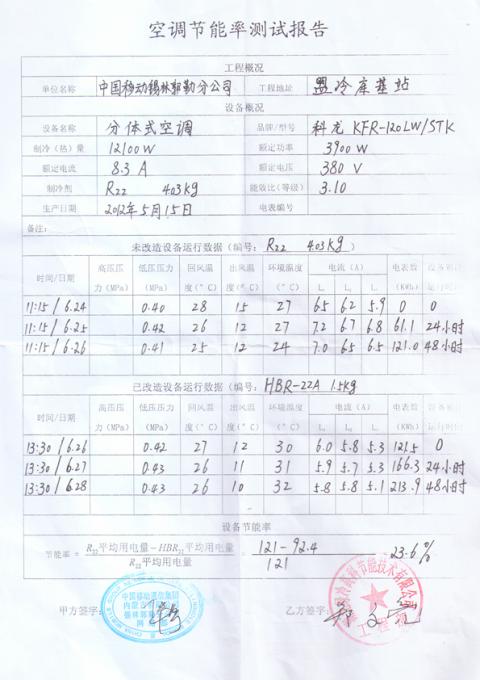 空调节能率测试报告
工程概况
单位名称 中国移动锡林郭勒分公司 工程地址 盟冷库基站
设备概况
设备名称 分体式空调 品牌/型号 科龙 KFR-120LW/STK
制冷（热）量 12100W 额定功率 3900W
额定电流 8.3 A 额定电压 380 V
制冷剂 R22 4.03kg 能效比(等级) 3.10
生产日期 2012年5月15日 电表编号
备注:
未改造设备运行数据（编号: R22 4.03kg ）
时间/日期 高压压力(MPa) 低压压力(MPa) 回风温度(°C) 出风温度(°C) 环境温度(°C) 电流 (A) 电表数(KWh)
11:15 / 6.24 0.40 28 15 27 6.5 6.2 5.9 0 0
11:15 / 6.25 0.42 26 12 27 7.2 6.7 6.8 61.1 24小时
11:15 / 6.26 0.41 25 12 24 7.0 6.5 6.5 121.0 48小时
已改造设备运行数据（编号: HBR-22A 1.5kg
时间/日期 高压压力(MPa) 低压压力(MPa) 回风温度(°C) 出风温度(°C) 环境温度(°C) 电流 (A) 电表数(KWh)
13:30 / 6.26 0.42 27 12 30 6.0 5.8 5.3 121.5 0
13:30 / 6.27 0.43 26 11 31 5.9 5.7 5.3 166.3 24小时
13:30 / 6.28 0.43 26 10 32 5.8 5.8 5.1 213.9 48小时
设备节能率
节能率 = R22平均用电量−HBR22平均用电量 / R22平均用电量 = 121-92.4 / 121 = 23.6%
甲方签字: 乙方签字:
中国移动通信集团
内蒙古